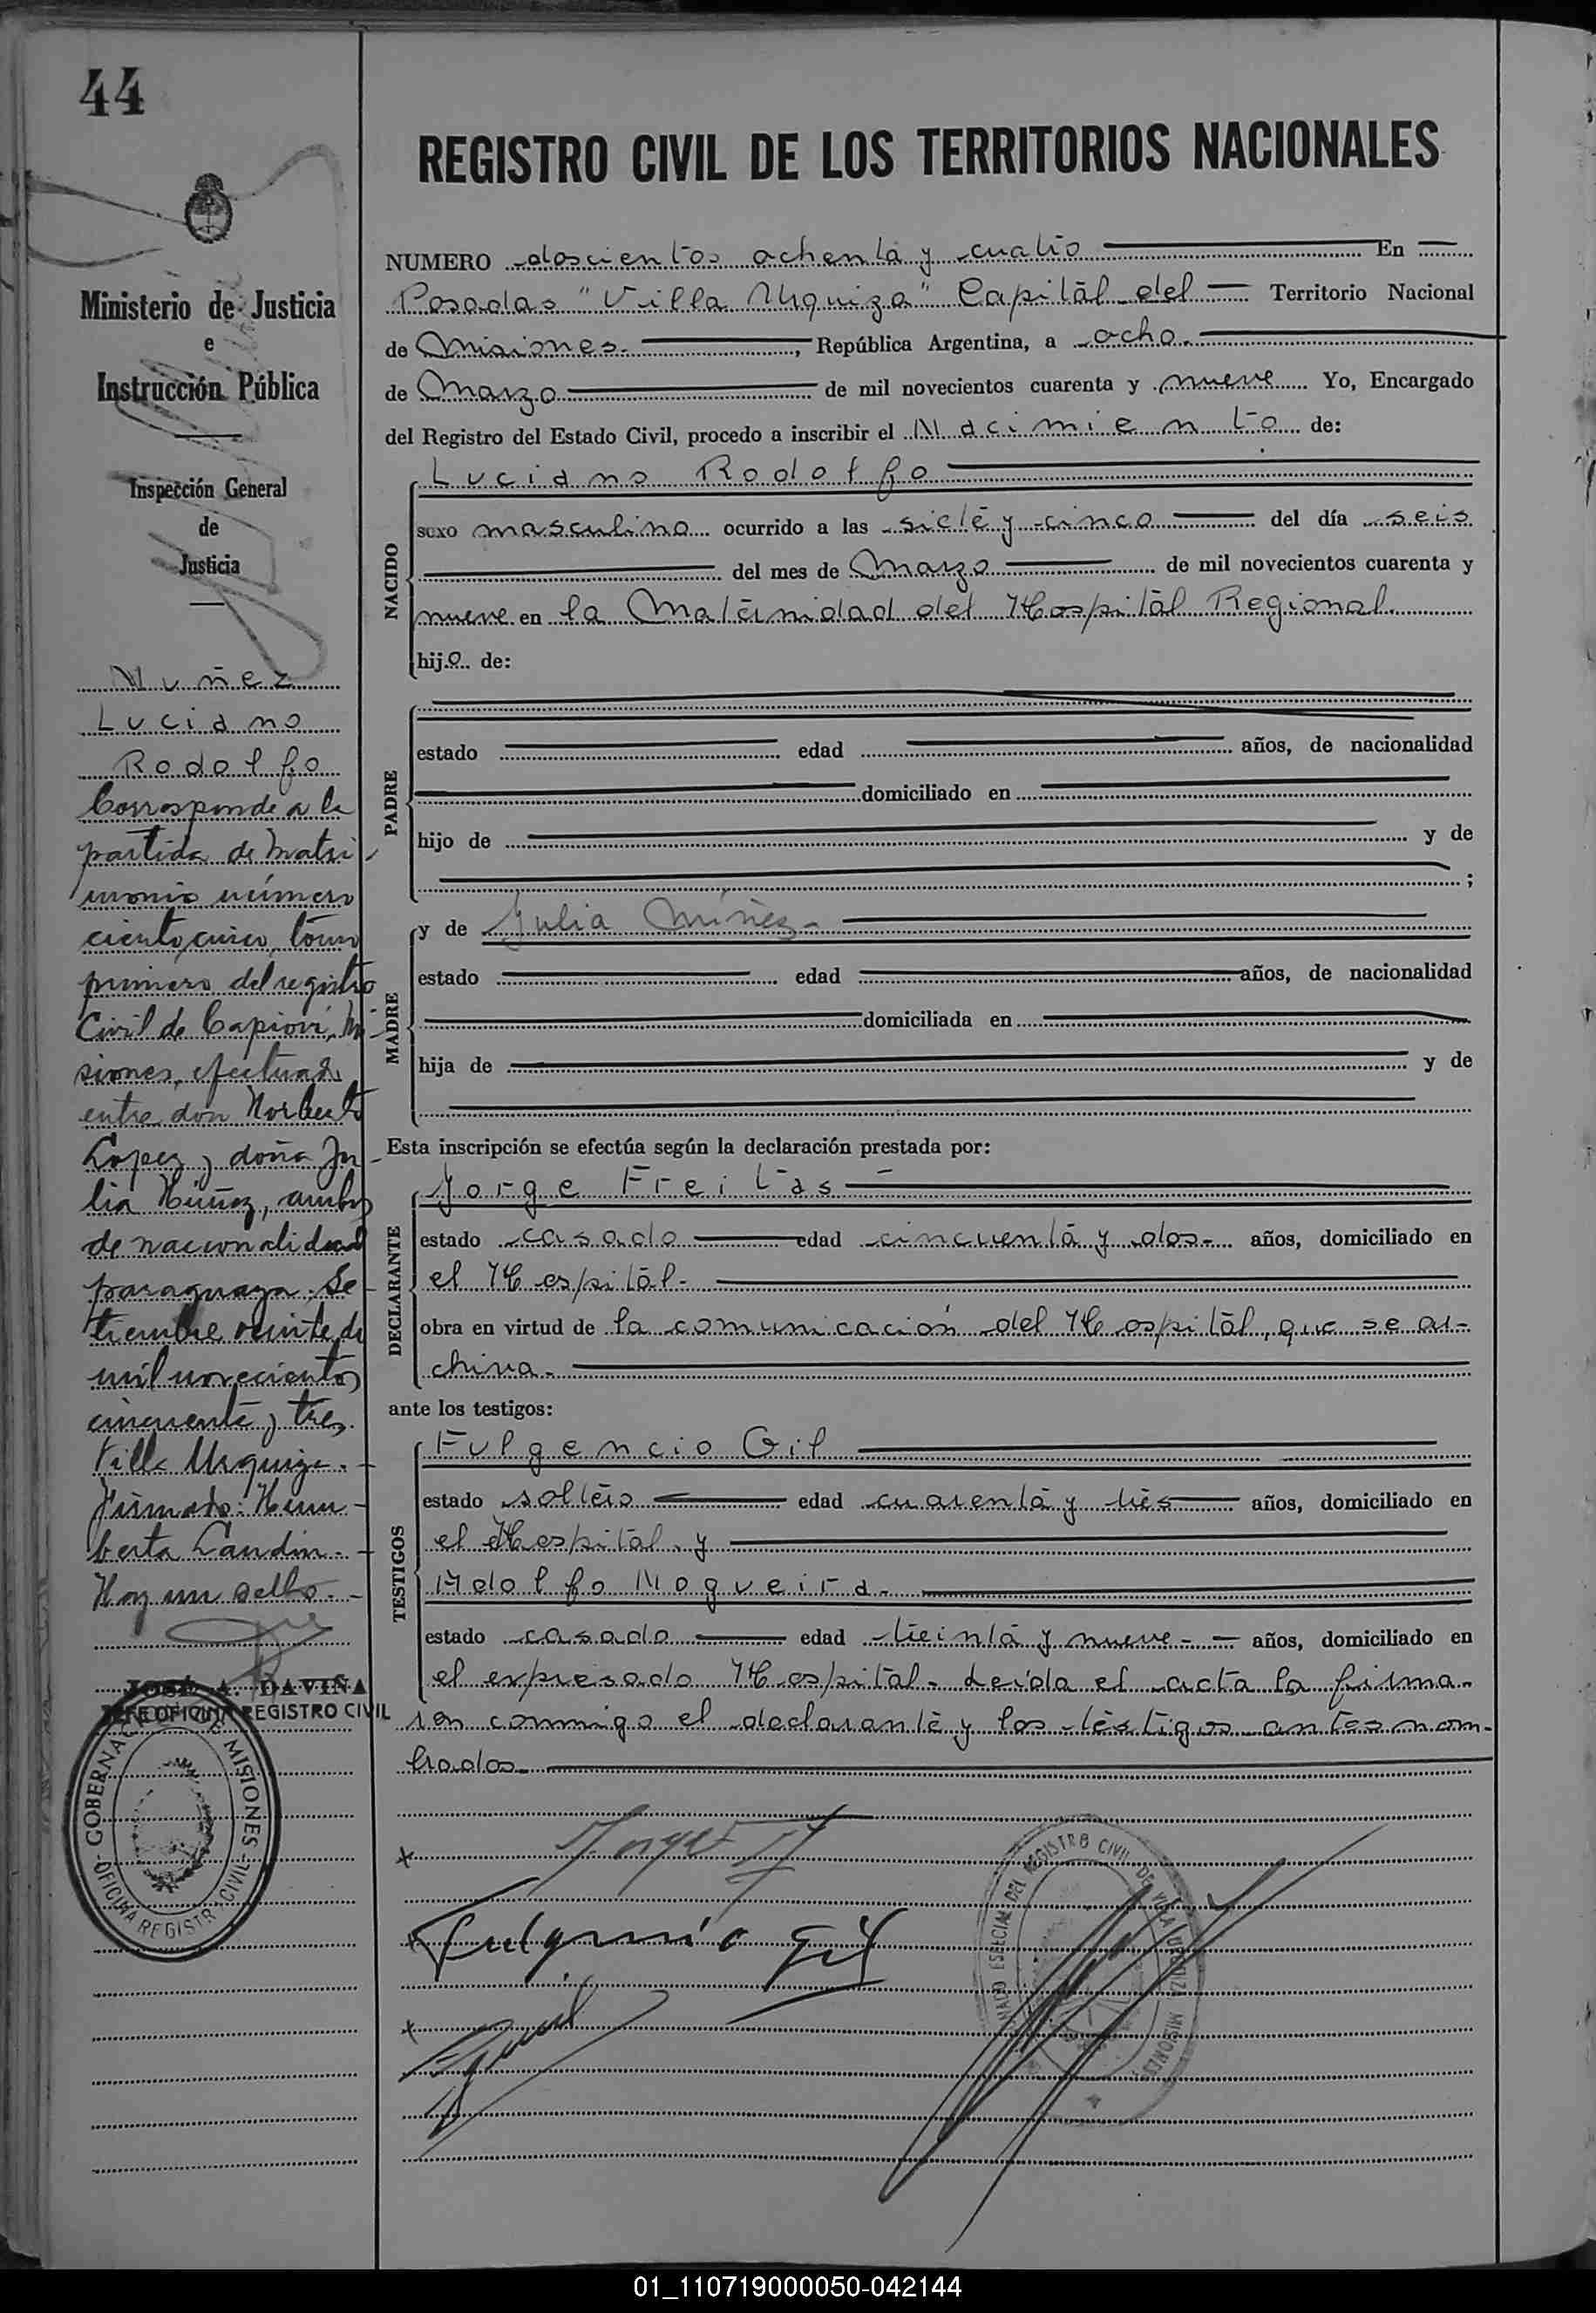 44
REGISTRO CIVIL DE LOS TERRITORIOS NACIONALES
Ministerio de Justicia
e
Instrucción Pública
Inspección General
de
Justicia
Nuñez
Luciano
Rodolfo
Corresponde a la
partida de Matri-
monio número
ciento cinco, tomo
primero del registro
Civil de Capiovi, Mi-
siones, efectuada
entre don Norberto
Lopez y doña Ju-
lia Núñez, ambos
de nacionalidad
paraguaya. Se-
tiembre veinte de
mil novecientos
cincuenta y tres.
Villa Urquiza.-
Firmado: Hum-
berto Landin.-
Hay un sello.-
JOSÉ A. DAVIÑA
JEFE OFICINA REGISTRO CIVIL
GOBERNACION DE MISIONES
OFICINA REGISTRO CIVIL
NUMERO doscientos ochenta y cuatro En
Posadas "Villa Urquiza" Capital del Territorio Nacional
de Misiones.- , República Argentina, a ocho.
de Marzo de mil novecientos cuarenta y nueve Yo, Encargado
del Registro del Estado Civil, procedo a inscribir el Nacimiento de:
NACIDO
Luciano Rodolfo
sexo masculino ocurrido a las siete y cinco del día seis
del mes de Marzo de mil novecientos cuarenta y
nueve en la Maternidad del Hospital Regional.
hijo de:
PADRE
estado edad años, de nacionalidad
domiciliado en
hijo de y de
;
MADRE
y de Julia Núñez-
estado edad años, de nacionalidad
domiciliada en
hija de y de
Esta inscripción se efectúa según la declaración prestada por:
DECLARANTE
Jorge Freitas
estado casado edad cincuenta y dos- años, domiciliado en
el Hospital-
obra en virtud de la comunicación del Hospital, que se ar-
chiva.-
ante los testigos:
TESTIGOS
Fulgencio Gil
estado soltero edad cuarenta y tres años, domiciliado en
el Hospital y
Adolfo Nogueira-
estado casado edad treinta y nueve- años, domiciliado en
el expresado Hospital- Leída el acta la firma-
ron conmigo el declarante y los testigos antes nom-
brados.-
Fulgencio Gil
REGISTRO CIVIL DE VILLA URQUIZA MISIONES
01_110719000050-042144